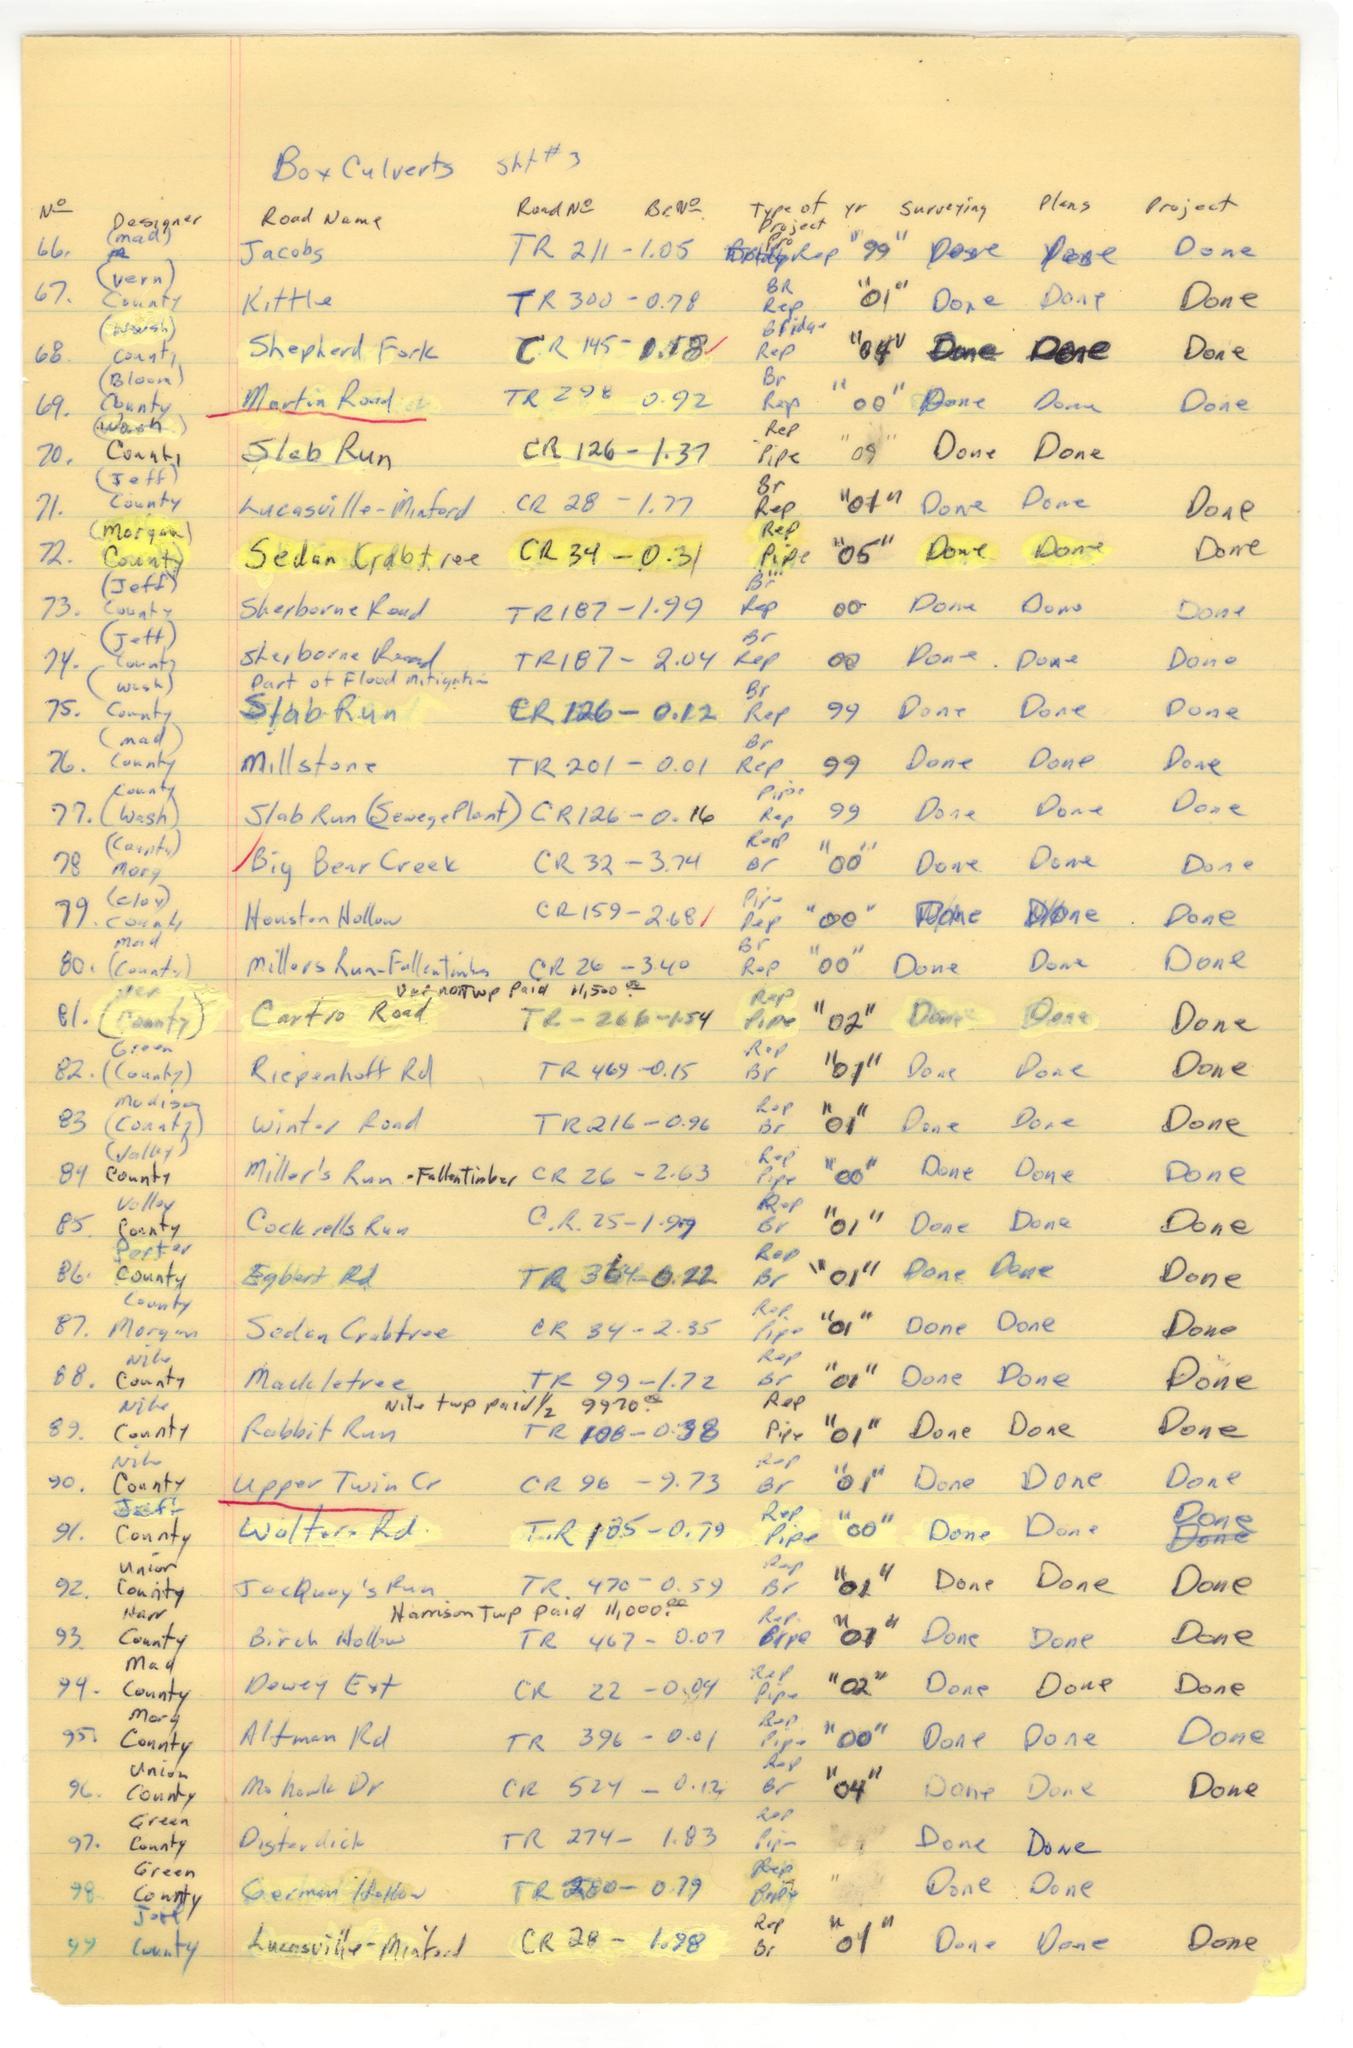 Box Culverts Sht # 3
No Designer Road Name Road No Br. No. Type of Project yr Surveying Plans Project
66. (Mad) Jacobs TR 211-1.05 Rep "99" Done Done Done
(Vern)
67. County Kittle TR 300-0.78 BR Rep "01" Done Done Done
(Wash)
68. County Shepherd Fork CR 145- Bridge Rep "04" Done Done Done
(Bloom)
69. County Martin Road TR 298 0.92 Br Rep "00" Done Done Done
(Wash)
70. County Slab Run CR 126-1.37 Rep Pipe "09" Done Done
(Jeff)
71. County Lucasville-Minford CR 28-1.77 Br Rep "01" Done Done Done
(Morgan)
72. County Sedan Crabtree CR 34-0.31 Rep Pipe "05" Done Done Done
(Jeff)
73. County Sherborne Road TR 187-1.99 Br Rep 00 Done Done Done
(Jeff)
74. County Sherborne Road TR 187-2.04 Br Rep 00 Done Done Done
(Wash) Part of Flood Mitigation
75. County Slab Run CR 126-0.12 Br Rep 99 Done Done Done
(Mad)
76. County Millstone TR 201-0.01 Br Rep 99 Done Done Done
County
77. (Wash) Slab Run (Sewege Plant) CR 126-0.16 Pipe Rep 99 Done Done Done
(County)
78 Morg Big Bear Creek CR 32-3.74 Rep Br "00" Done Done Done
(Clay)
79. County Houston Hollow CR 159-2.68 Pipe Rep "00" Done Done Done
Mad
80. (County) Millers Run-Fallentimber CR 26-3.40 Br Rep "00" Done Done Done
Ver Vernon Twp Paid 11,500.00
81. (County) Cartro Road TR-266-1.54 Rep Pipe "02" Done Done Done
Green
82. (County) Riepenhoff Rd TR 469-0.15 Rep Br "01" Done Done Done
Madison
83 (County) Winter Road TR 216-0.96 Rep Br "01" Done Done Done
(Valley)
84 County Miller's Run -Fallentimber CR 26-2.63 Rep Pipe "00" Done Done Done
Valley
85. County Cockrells Run C.R. 25-1.99 Rep Br "01" Done Done Done
Porter
86. County Egbert Rd TR 364-0.22 Rep Br "01" Done Done Done
County
87. Morgan Sedan Crabtree CR 34-2.35 Rep Pipe "01" Done Done Done
Nile
88. County Mackletree TR 99-1.72 Rep Br "01" Done Done Done
Nile Nile twp paid 1/2 9970.00
89. County Rabbit Run TR 108-0.38 Rep Pipe "01" Done Done Done
Nile
90. County Upper Twin Cr CR 96-9.73 Rep Br "01" Done Done Done
Jeff Done
91. County Walters Rd. T.R 185-0.79 Rep Pipe "00" Done Done Done
Union
92. County Jacquay's Run TR 470-0.59 Rep Br "02" Done Done Done
Harr Harrison Twp paid 11,000.00
93. County Birch Hollow TR 467-0.07 Rep "01" Done Done Done
Mad
94. County Dewey Ext CR 22-0.04 Rep Pipe "02" Done Done Done
Morg
95. County Altman Rd TR 396-0.01 Rep Pipe "00" Done Done Done
Union
96. County Mohawk Dr CR 524-0.12 Rep Br "04" Done Done Done
Green
97. County Disterdick TR 274-1.83 Rep Pipe Done Done
Green
98 County German Hollow TR 280-0.79 Rep Done Done
Jeff
99 County Lucasville-Minford CR 28-1.98 Rep Br "01" Done Done Done